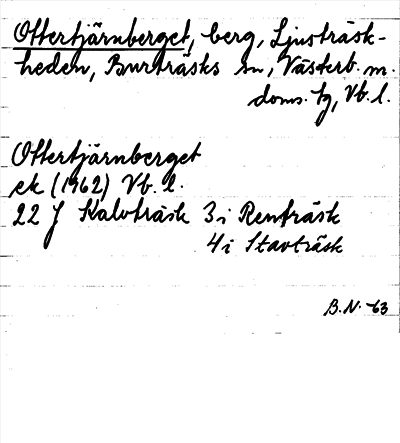 Ottertjärnberget, berg, Ljusträsk-
heden, Burträsks sn, Västerb. m.
doms. tg, Vb. l.
Ottertjärnberget
ek (1962) Vb. l.
22 J Kalvträsk 3 i Renträsk
4 i Stavträsk
B.N. -63